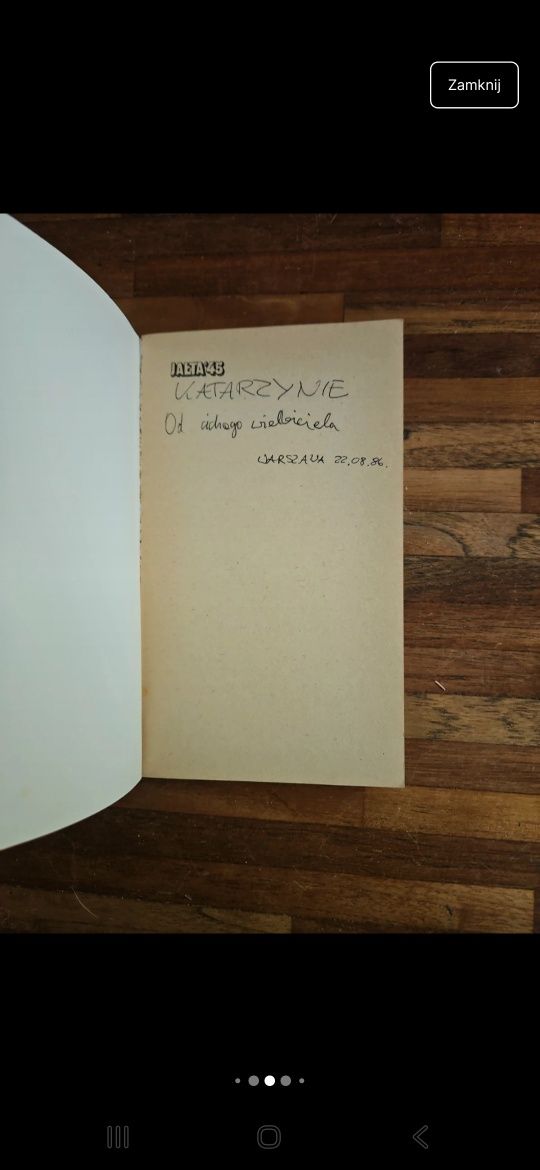 Zamknij
JAŁTA'45
KATARZYNIE
Od cichego wielbiciela
WARSZAWA 22.08.86.